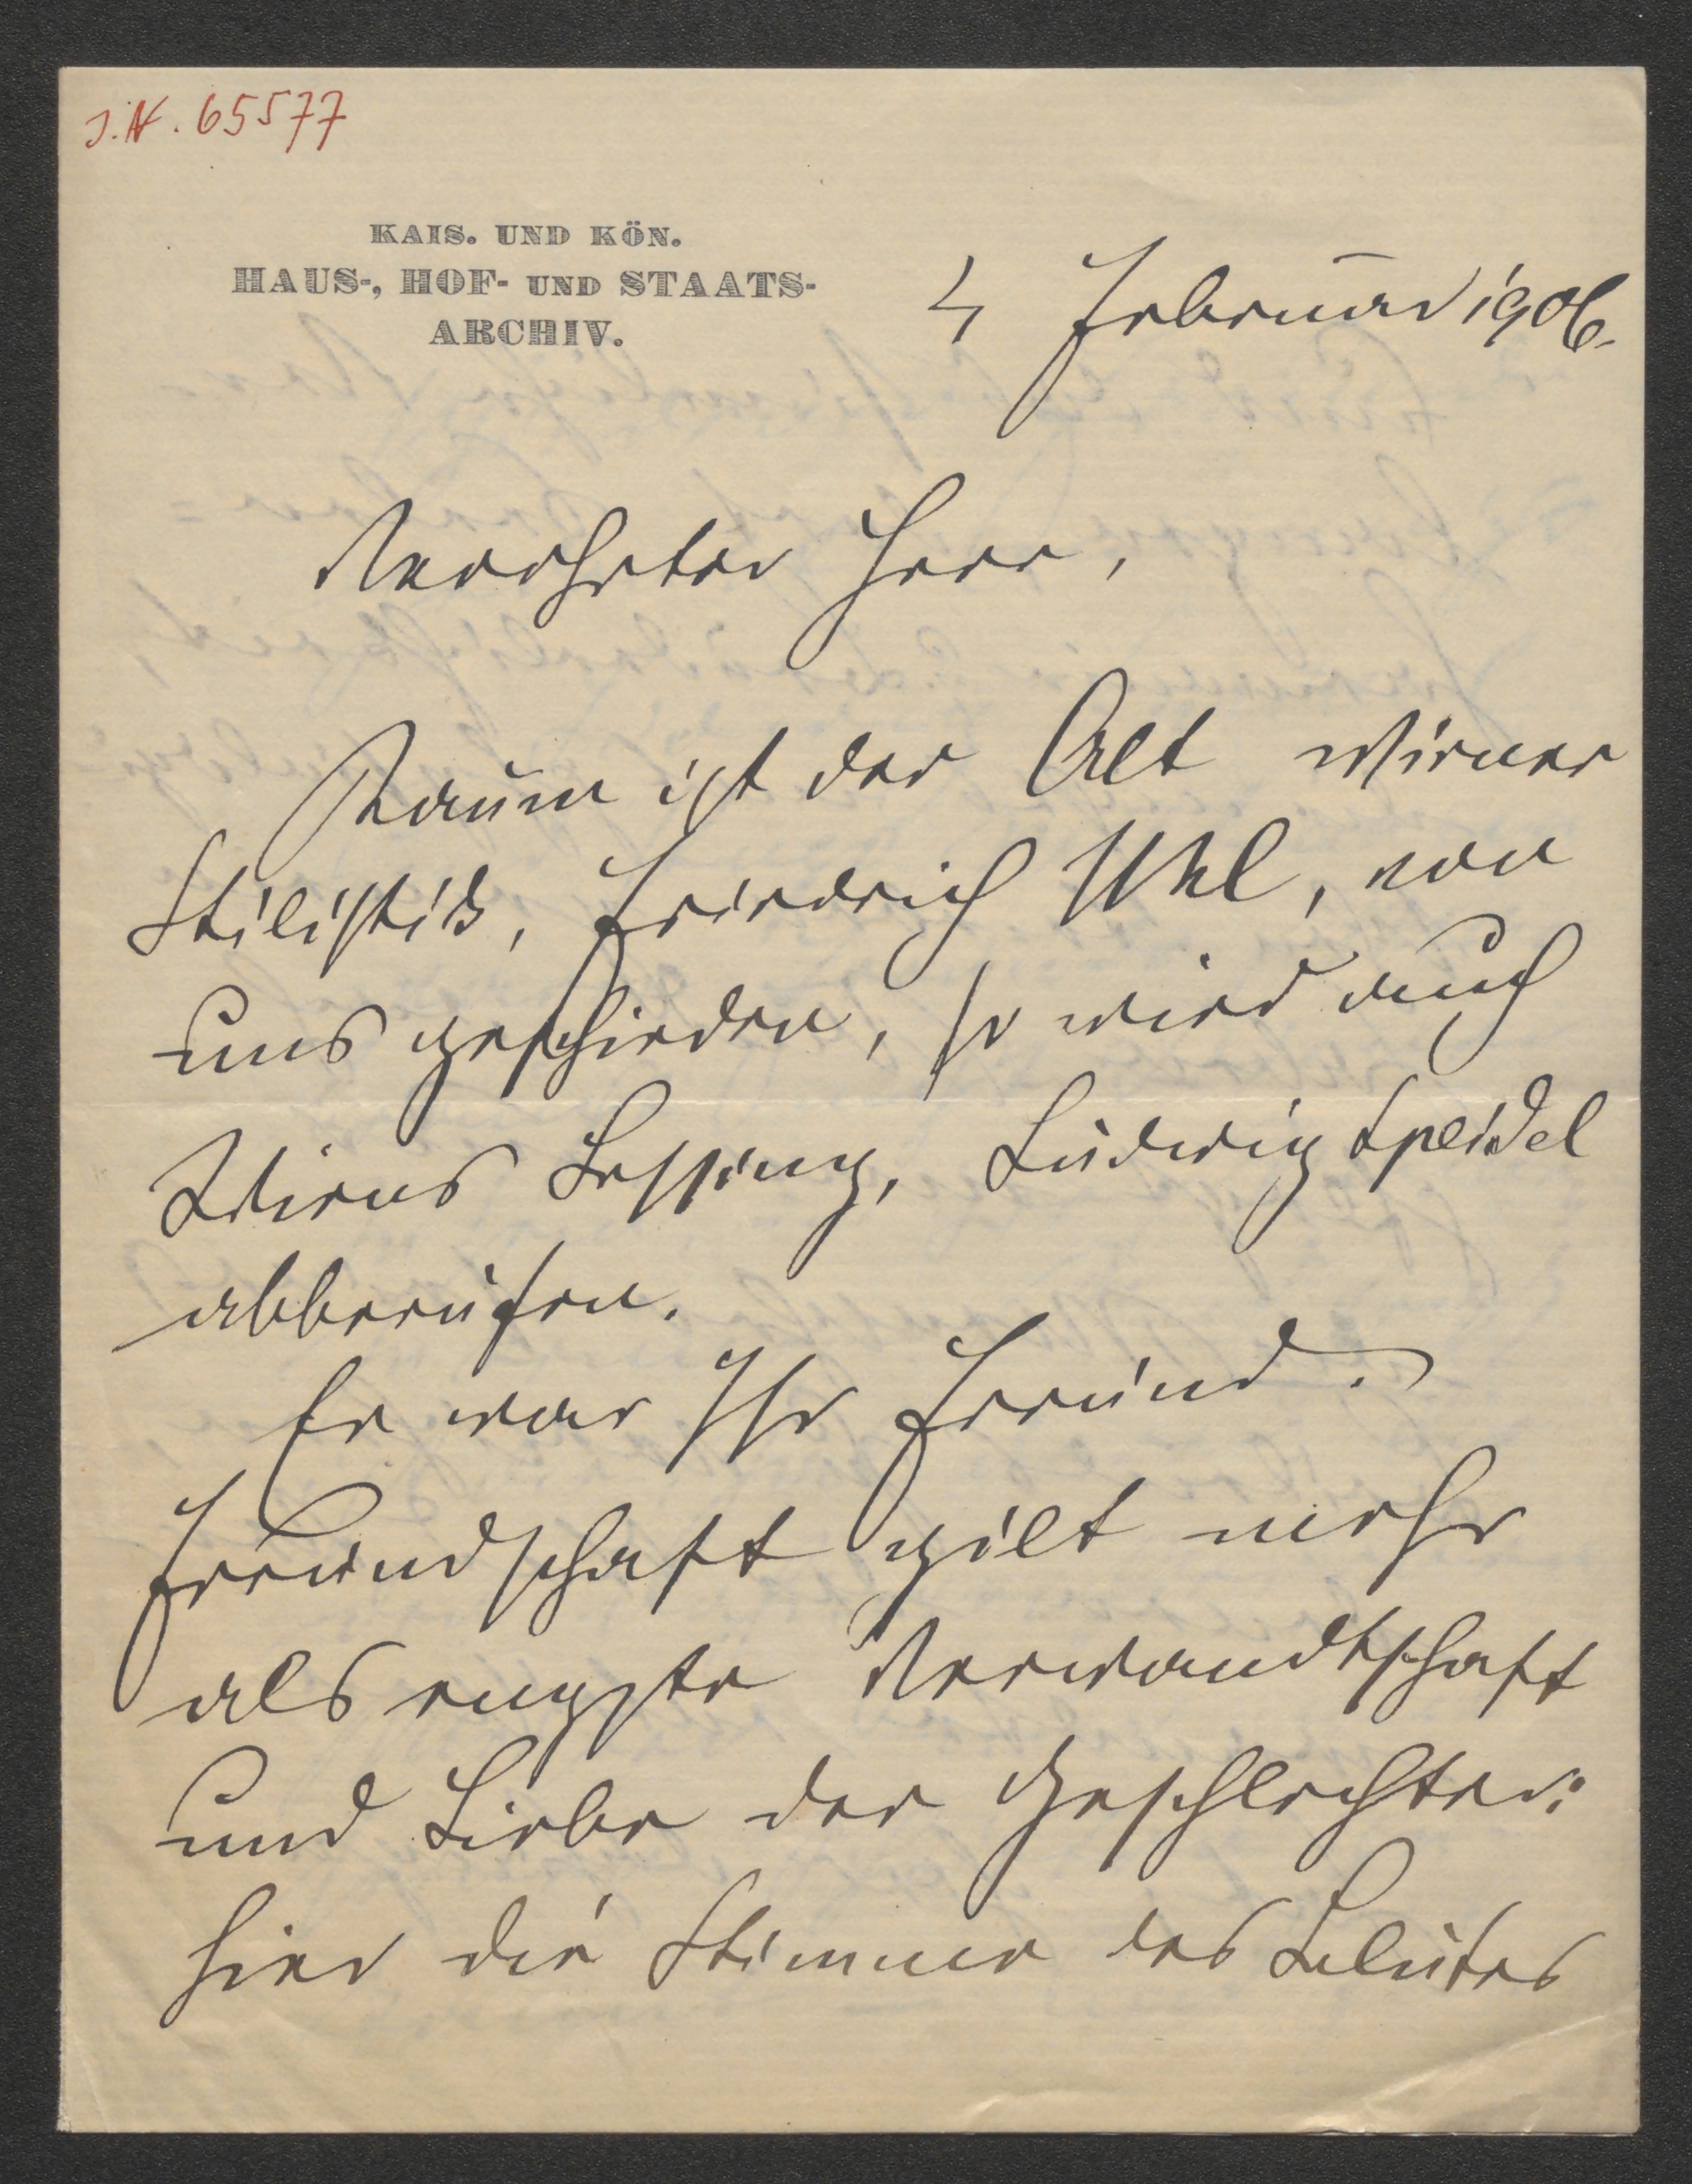 J.N. 65577
KAIS. UND KÖN.
HAUS-, HOF- UND STAATS-
ARCHIV.
4 Februar 1906.
Verehrter Herr,
Kaum ist der Alt Wiener
Stilistik, Friedrich Uhl, von
uns geschieden, so wird auch
Wiens Lessing, Ludwig Speidel
abberufen.
Er war Ihr Freund.
Freundschaft gilt mehr
als engste Verwandtschaft
und Liebe der Geschlechter:
hier die Stimme des Blutes